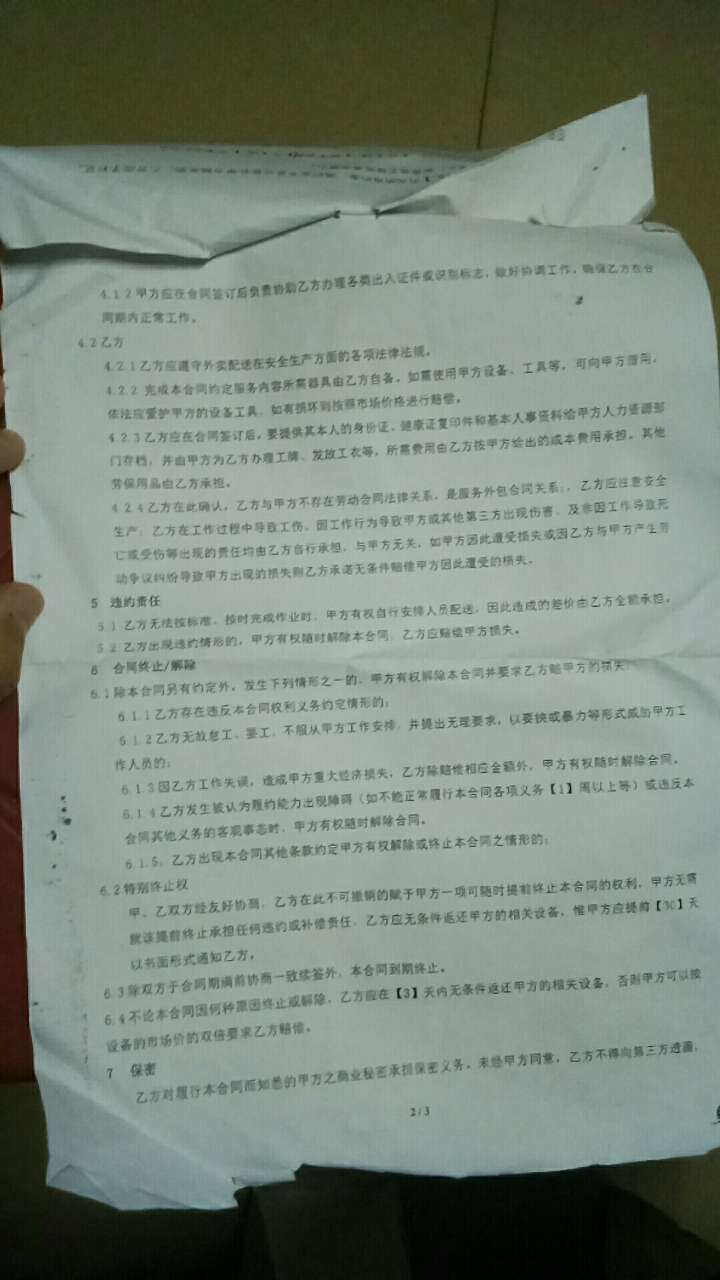 4.1.2甲方应在合同签订后负责协助乙方办理各类出入证件或识别标志,做好协调工作,确保乙方在合
同期内正常工作。
4.2乙方
4.2.1乙方应遵守外卖配送在安全生产方面的各项法律法规。
4.2.2 完成本合同约定服务内容所需器具由乙方自备。如需使用甲方设备、工具等,可向甲方借用,
依法应爱护甲方的设备工具,如有损坏则按照市场价格进行赔偿。
4.2.3乙方应在合同签订后,要提供其本人的身份证、健康证复印件和基本人事资料给甲方人力资源部
门存档;并由甲方为乙方办理工牌、发放工衣等,所需费用由乙方按甲方给出的成本费用承担。其他
劳保用品由乙方承担。
4.2.4乙方在此确认,乙方与甲方不存在劳动合同法律关系,是服务外包合同关系;,乙方应注意安全
生产;乙方在工作过程中导致工伤、因工作行为导致甲方或其他第三方出现伤害、及非因工作导致死
亡或受伤等出现的责任均由乙方自行承担,与甲方无关,如甲方因此遭受损失或因乙方与甲方产生劳
动争议纠纷导致甲方出现的损失则乙方承诺无条件赔偿甲方因此遭受的损失。
5 违约责任
5.1乙方无法按标准、按时完成作业时,甲方有权自行安排人员配送,因此造成的差价由乙方全额承担。
5.2 乙方出现违约情形的,甲方有权随时解除本合同,乙方应赔偿甲方损失。
6 合同终止/解除
6.1除本合同另有约定外,发生下列情形之一的,甲方有权解除本合同并要求乙方赔甲方的损失:
6.1.1乙方存在违反本合同权利义务约定情形的;
6.1.2乙方无故怠工、罢工,不服从甲方工作安排,并提出无理要求,以要挟或暴力等形式威胁甲方工
作人员的;
6.1.3因乙方工作失误,造成甲方重大经济损失,乙方除赔偿相应金额外,甲方有权随时解除合同。
6.1.4乙方发生被认为履约能力出现障碍(如不能正常履行本合同各项义务【1】周以上等)或违反本
合同其他义务的客观事态时,甲方有权随时解除合同。
6.1.5,乙方出现本合同其他条款约定甲方有权解除或终止本合同之情形的;
6.2特别终止权
甲、乙双方经友好协商,乙方在此不可撤销的赋予甲方一项可随时提前终止本合同的权利,甲方无需
就该提前终止承担任何违约或补偿责任,乙方应无条件返还甲方的相关设备,惟甲方应提前【30】天
以书面形式通知乙方。
6.3除双方于合同期满前协商一致续签外,本合同到期终止。
6.4不论本合同因何种原因终止或解除,乙方应在【3】天内无条件返还甲方的相关设备,否则甲方可以按
设备的市场价的双倍要求乙方赔偿。
7 保密
乙方对履行本合同而知悉的甲方之商业秘密承担保密义务,未经甲方同意,乙方不得向第三方透露,
2/3